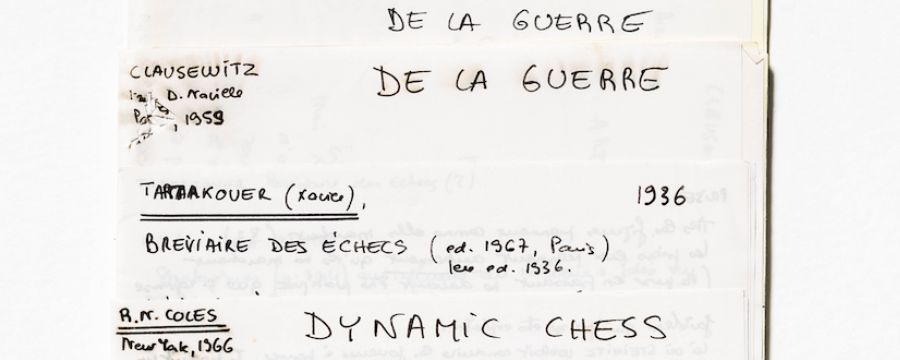 DE LA GUERRE
CLAUSEWITZ
DE LA GUERRE
D. Naville
1959
TARTAKOUER (Xavier),
1936
BREVIAIRE DES ÉCHECS (ed. 1967, Paris)
1ere ed. 1936.
R.N. COLES
DYNAMIC CHESS
New York, 1966